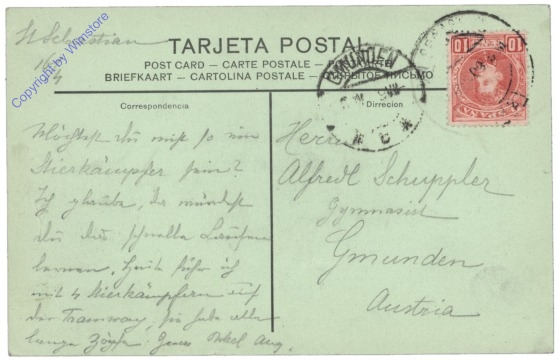 S. Sebastian
TARJETA POSTAL
POST CARD — CARTE POSTALE —
BRIEFKAART — CARTOLINA POSTALE — ОТКРЫТОЕ ПИСЬМО
Correspondencia
Direccion
Möchtest du nicht so ein
Stierkämpfer sein?
Ich glaube, da würdest
du das schnelle Laufen
lernen. Heute fuhr ich
mit 4 Stierkämpfern auf
der Tramway, sie habe alle
lange Zöpfe. Onkel Aug.
Herrn
Alfred Schuppler
Gymnasist
Gmunden
Austria
GMUNDEN
10 10
Copyright by Winstore